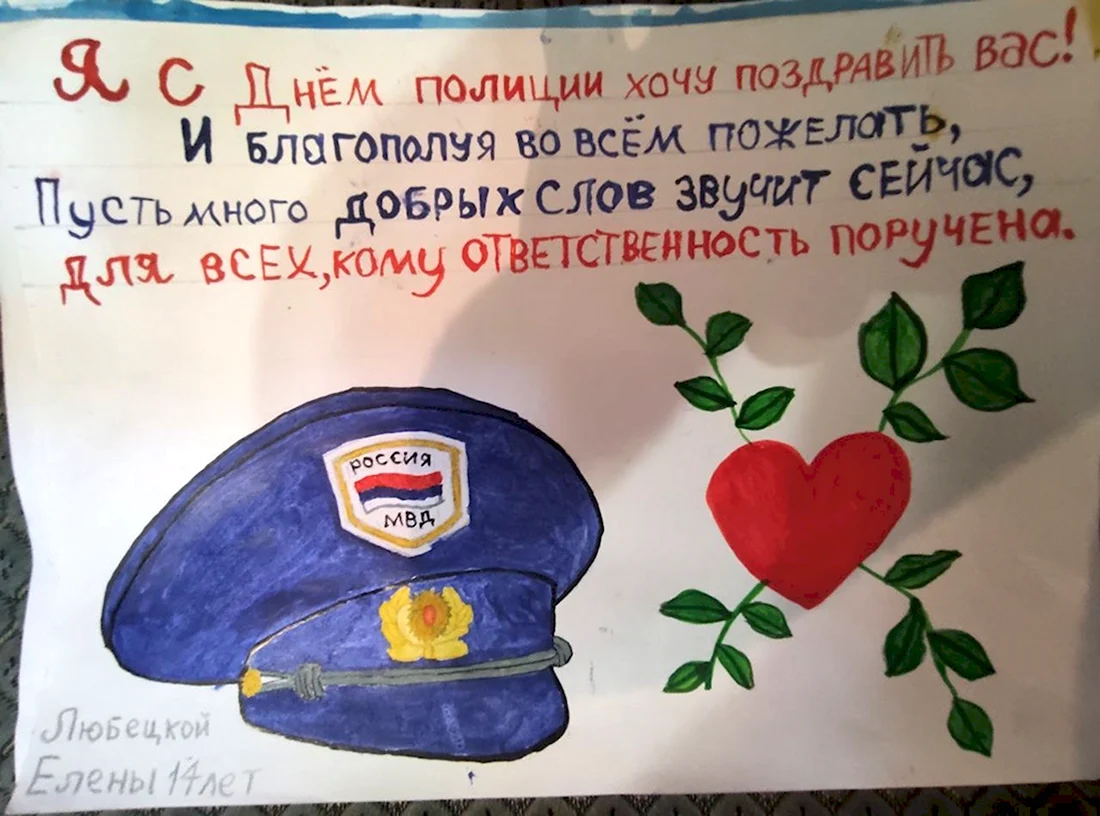 Я С Днём полиции хочу поздравить вас!
И благополуя во всём пожелать,
Пусть много добрых слов звучит сейчас,
Для всех, кому ответственность поручена.
РОССИЯ
МВД
Любецкой
Елены 14 лет